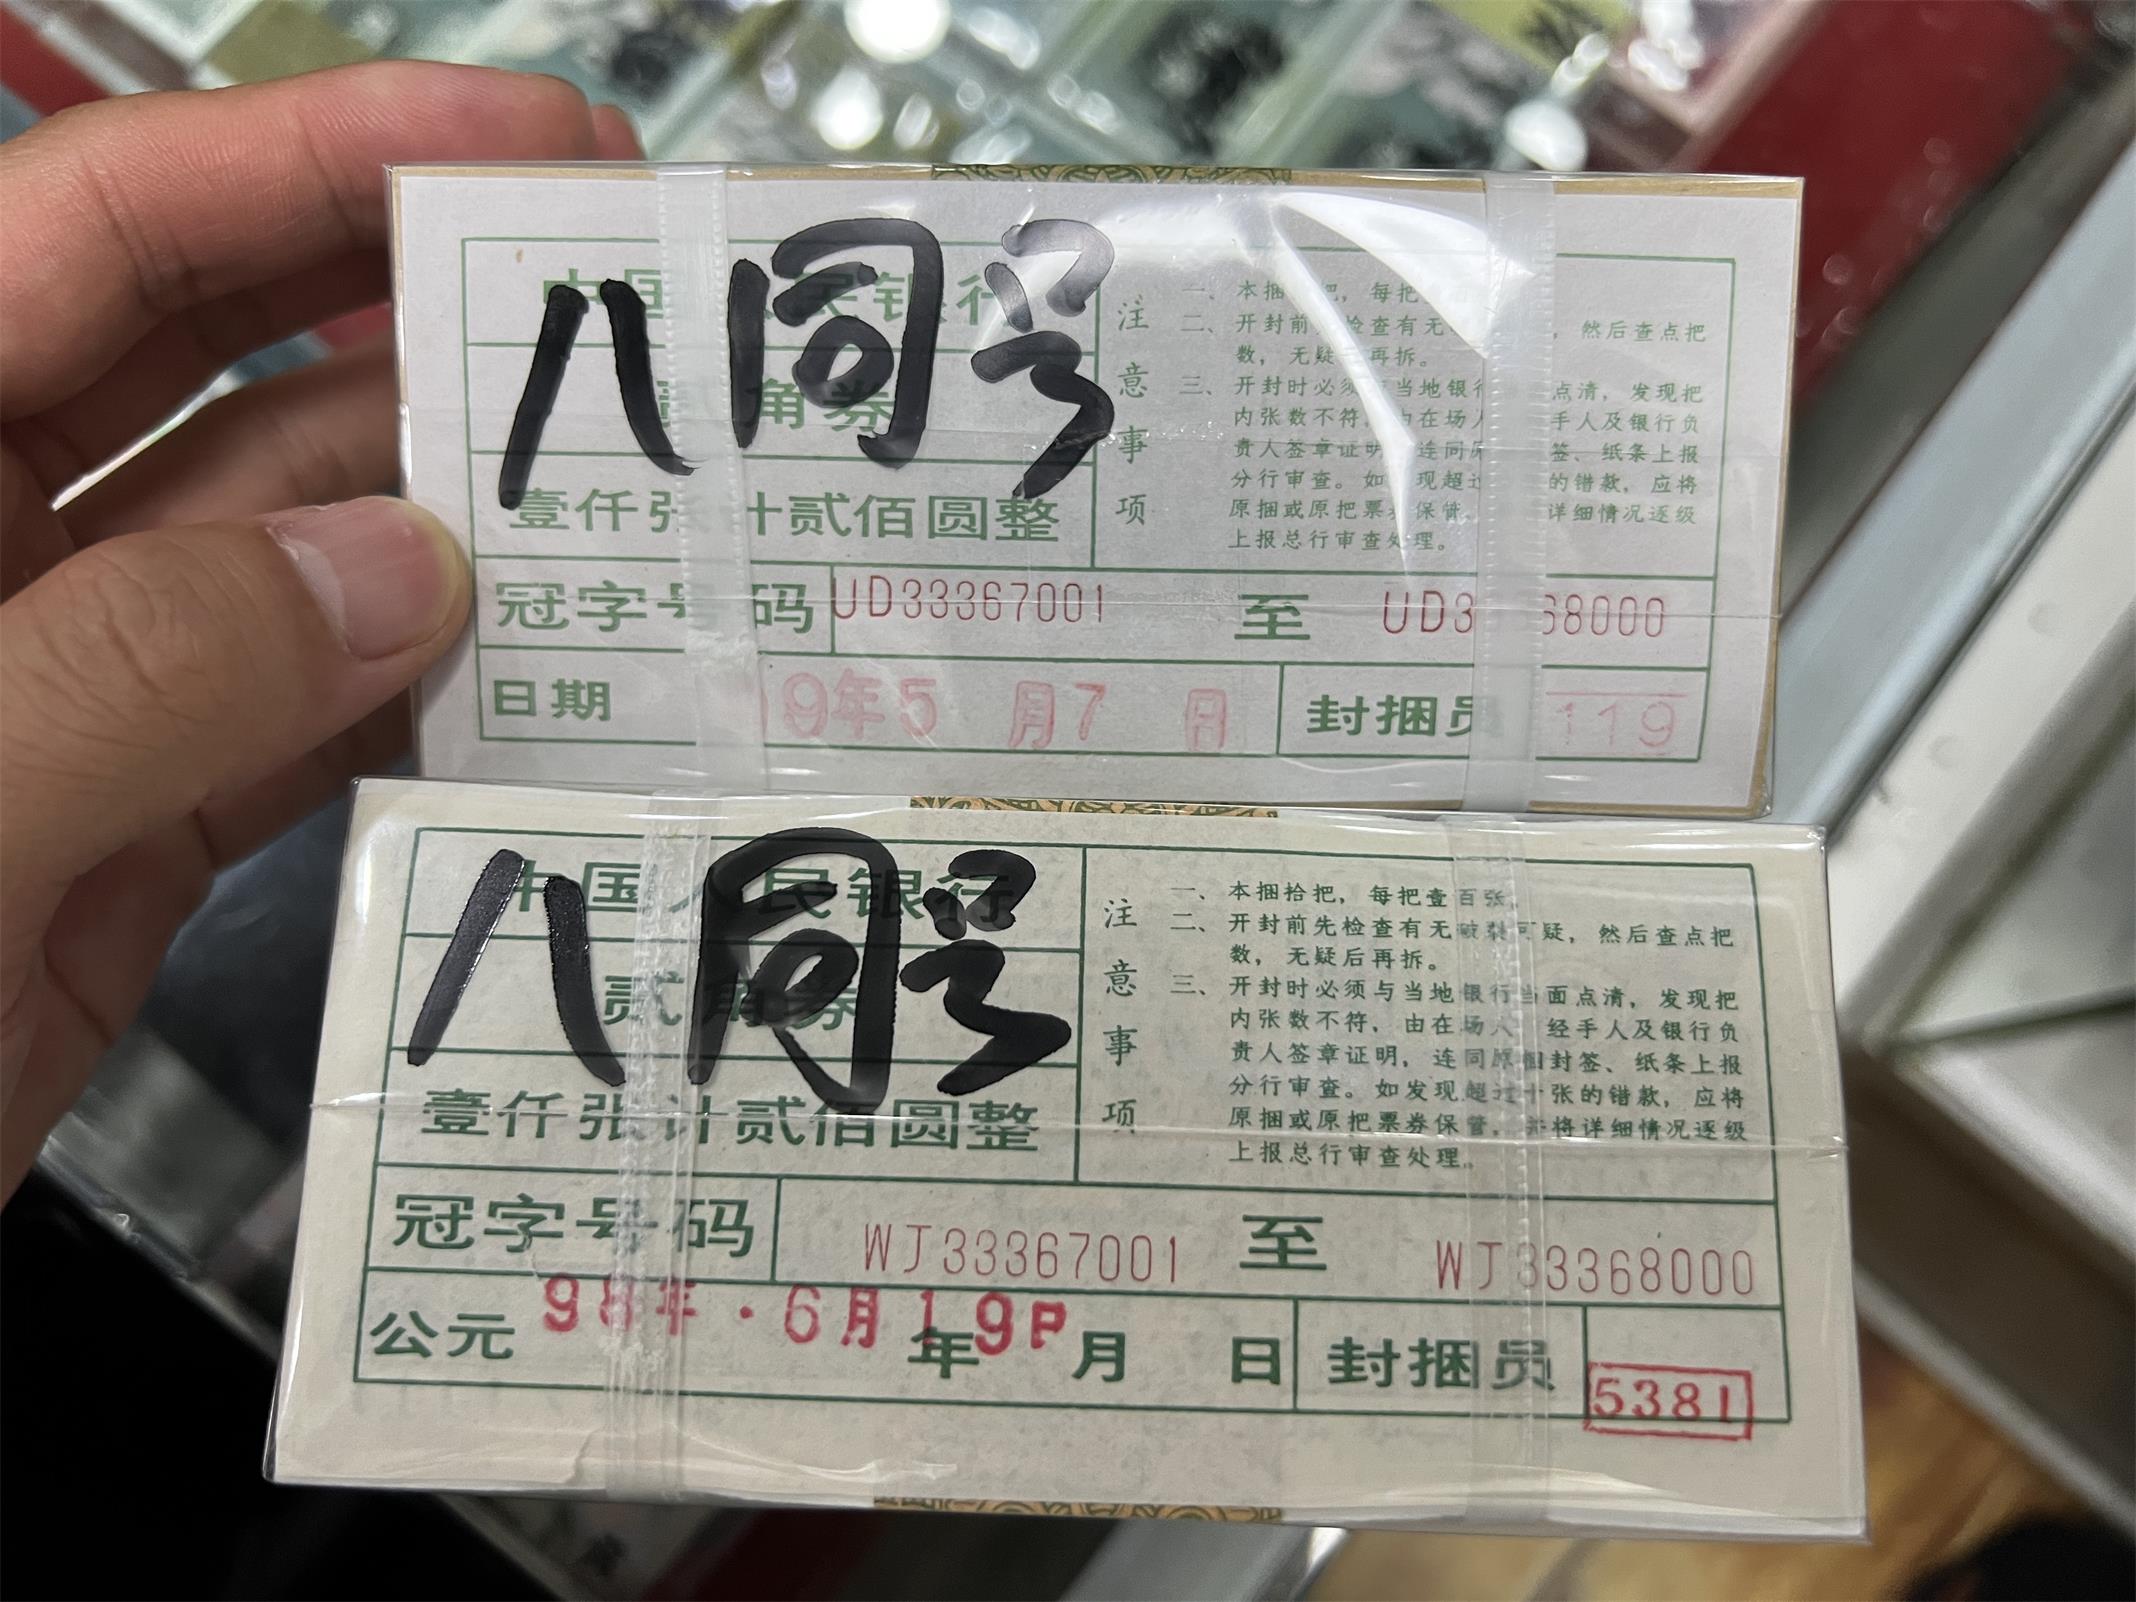 八同号
中国 民银行
角券
壹仟张计贰佰圆整
注意事项
一、本捆 把，每把
二、开封前先检查有无 ，然后查点把
数，无疑 再拆。
三、开封时必须与当地银行 点清，发现把
内张数不符，由在场人 手人及银行负
责人签章证明，连同原 签、纸条上报
分行审查。如 现超过 的错款，应将
原捆或原把票券保管， 详细情况逐级
上报总行审查处理。
冠字号码 UD33367001 至 UD3 68000
日期 9年5月7日 封捆员 119
八同号
中国人民银行
贰角券
壹仟张计贰佰圆整
注意事项
一、本捆拾把，每把壹百张。
二、开封前先检查有无破裂可疑，然后查点把
数，无疑后再拆。
三、开封时必须与当地银行当面点清，发现把
内张数不符，由在场人、经手人及银行负
责人签章证明，连同原捆封签、纸条上报
分行审查。如发现超过十张的错款，应将
原捆或原把票券保管，并将详细情况逐级
上报总行审查处理。
冠字号码 WJ33367001 至 WJ33368000
98年·6月19日
公元 年 月 日 封捆员 5381